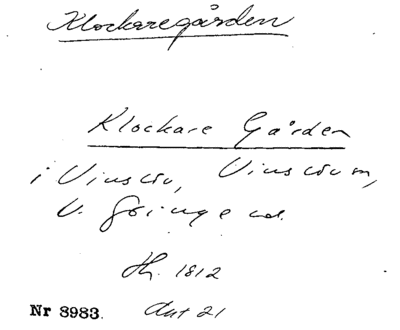 Klockaregården
Klockare Gården
i Vinslöv, Vinslövm,
V. Göinge hd.
Th. 1812
Nr 8983. Akt 21